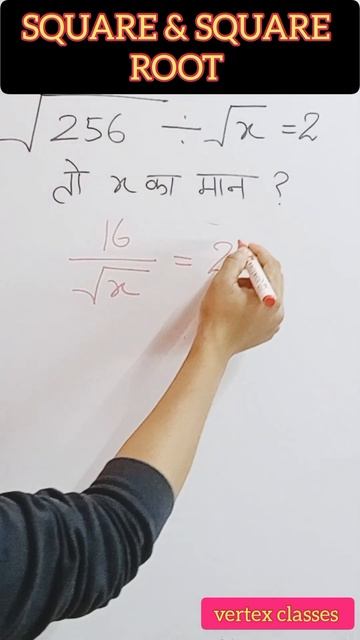 SQUARE & SQUARE
ROOT
√256 ÷ √x = 2
तो x का मान ?
16/√x = 2
vertex classes